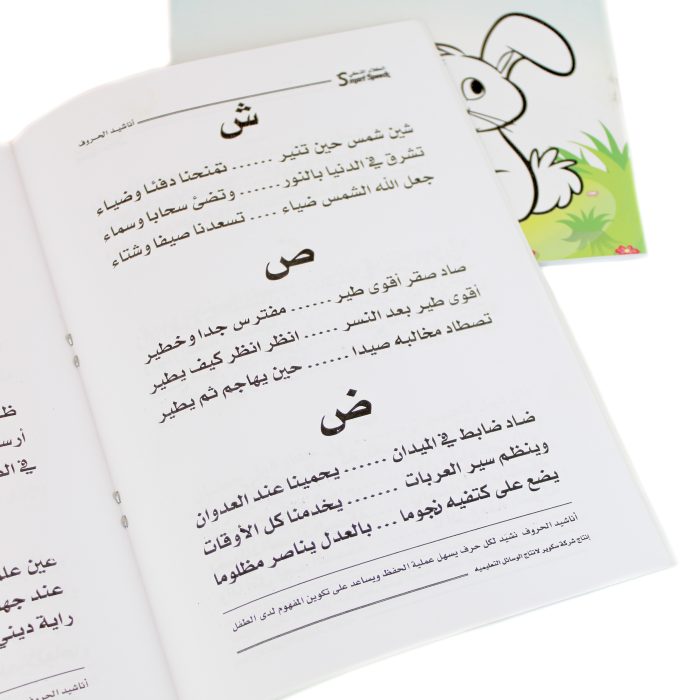 أناشيد الحروف
Super Speed
ش
شين شمس حين تنير ...... تمنحنا دفئا وضياء
تشرق في الدنيا بالنور...... وتضئ سحابا وسماء
جعل الله الشمس ضياء .... تسعدنا صيفا وشتاء
ص
صاد صقر أقوى طير ...... مفترس جدا وخطير
أقوى طير بعد النسر ..... انظر انظر كيف يطير
تصطاد مخالبه صيدا ...... حين يهاجم ثم يطير
ض
ضاد ضابط في الميدان ...... يحمينا عند العدوان
وينظم سير العربات ....... يخدمنا كل الأوقات
يضع على كتفيه نجوما ... بالعدل يناصر مظلوما
أناشيد الحروف نشيد لكل حرف يسهل عملية الحفظ ويساعد على تكوين المفهوم لدى الطفل
إنتاج شركة سكوير لانتاج الوسائل التعليميه
في
عين
عند
راية ديني
أناشيد الحروف